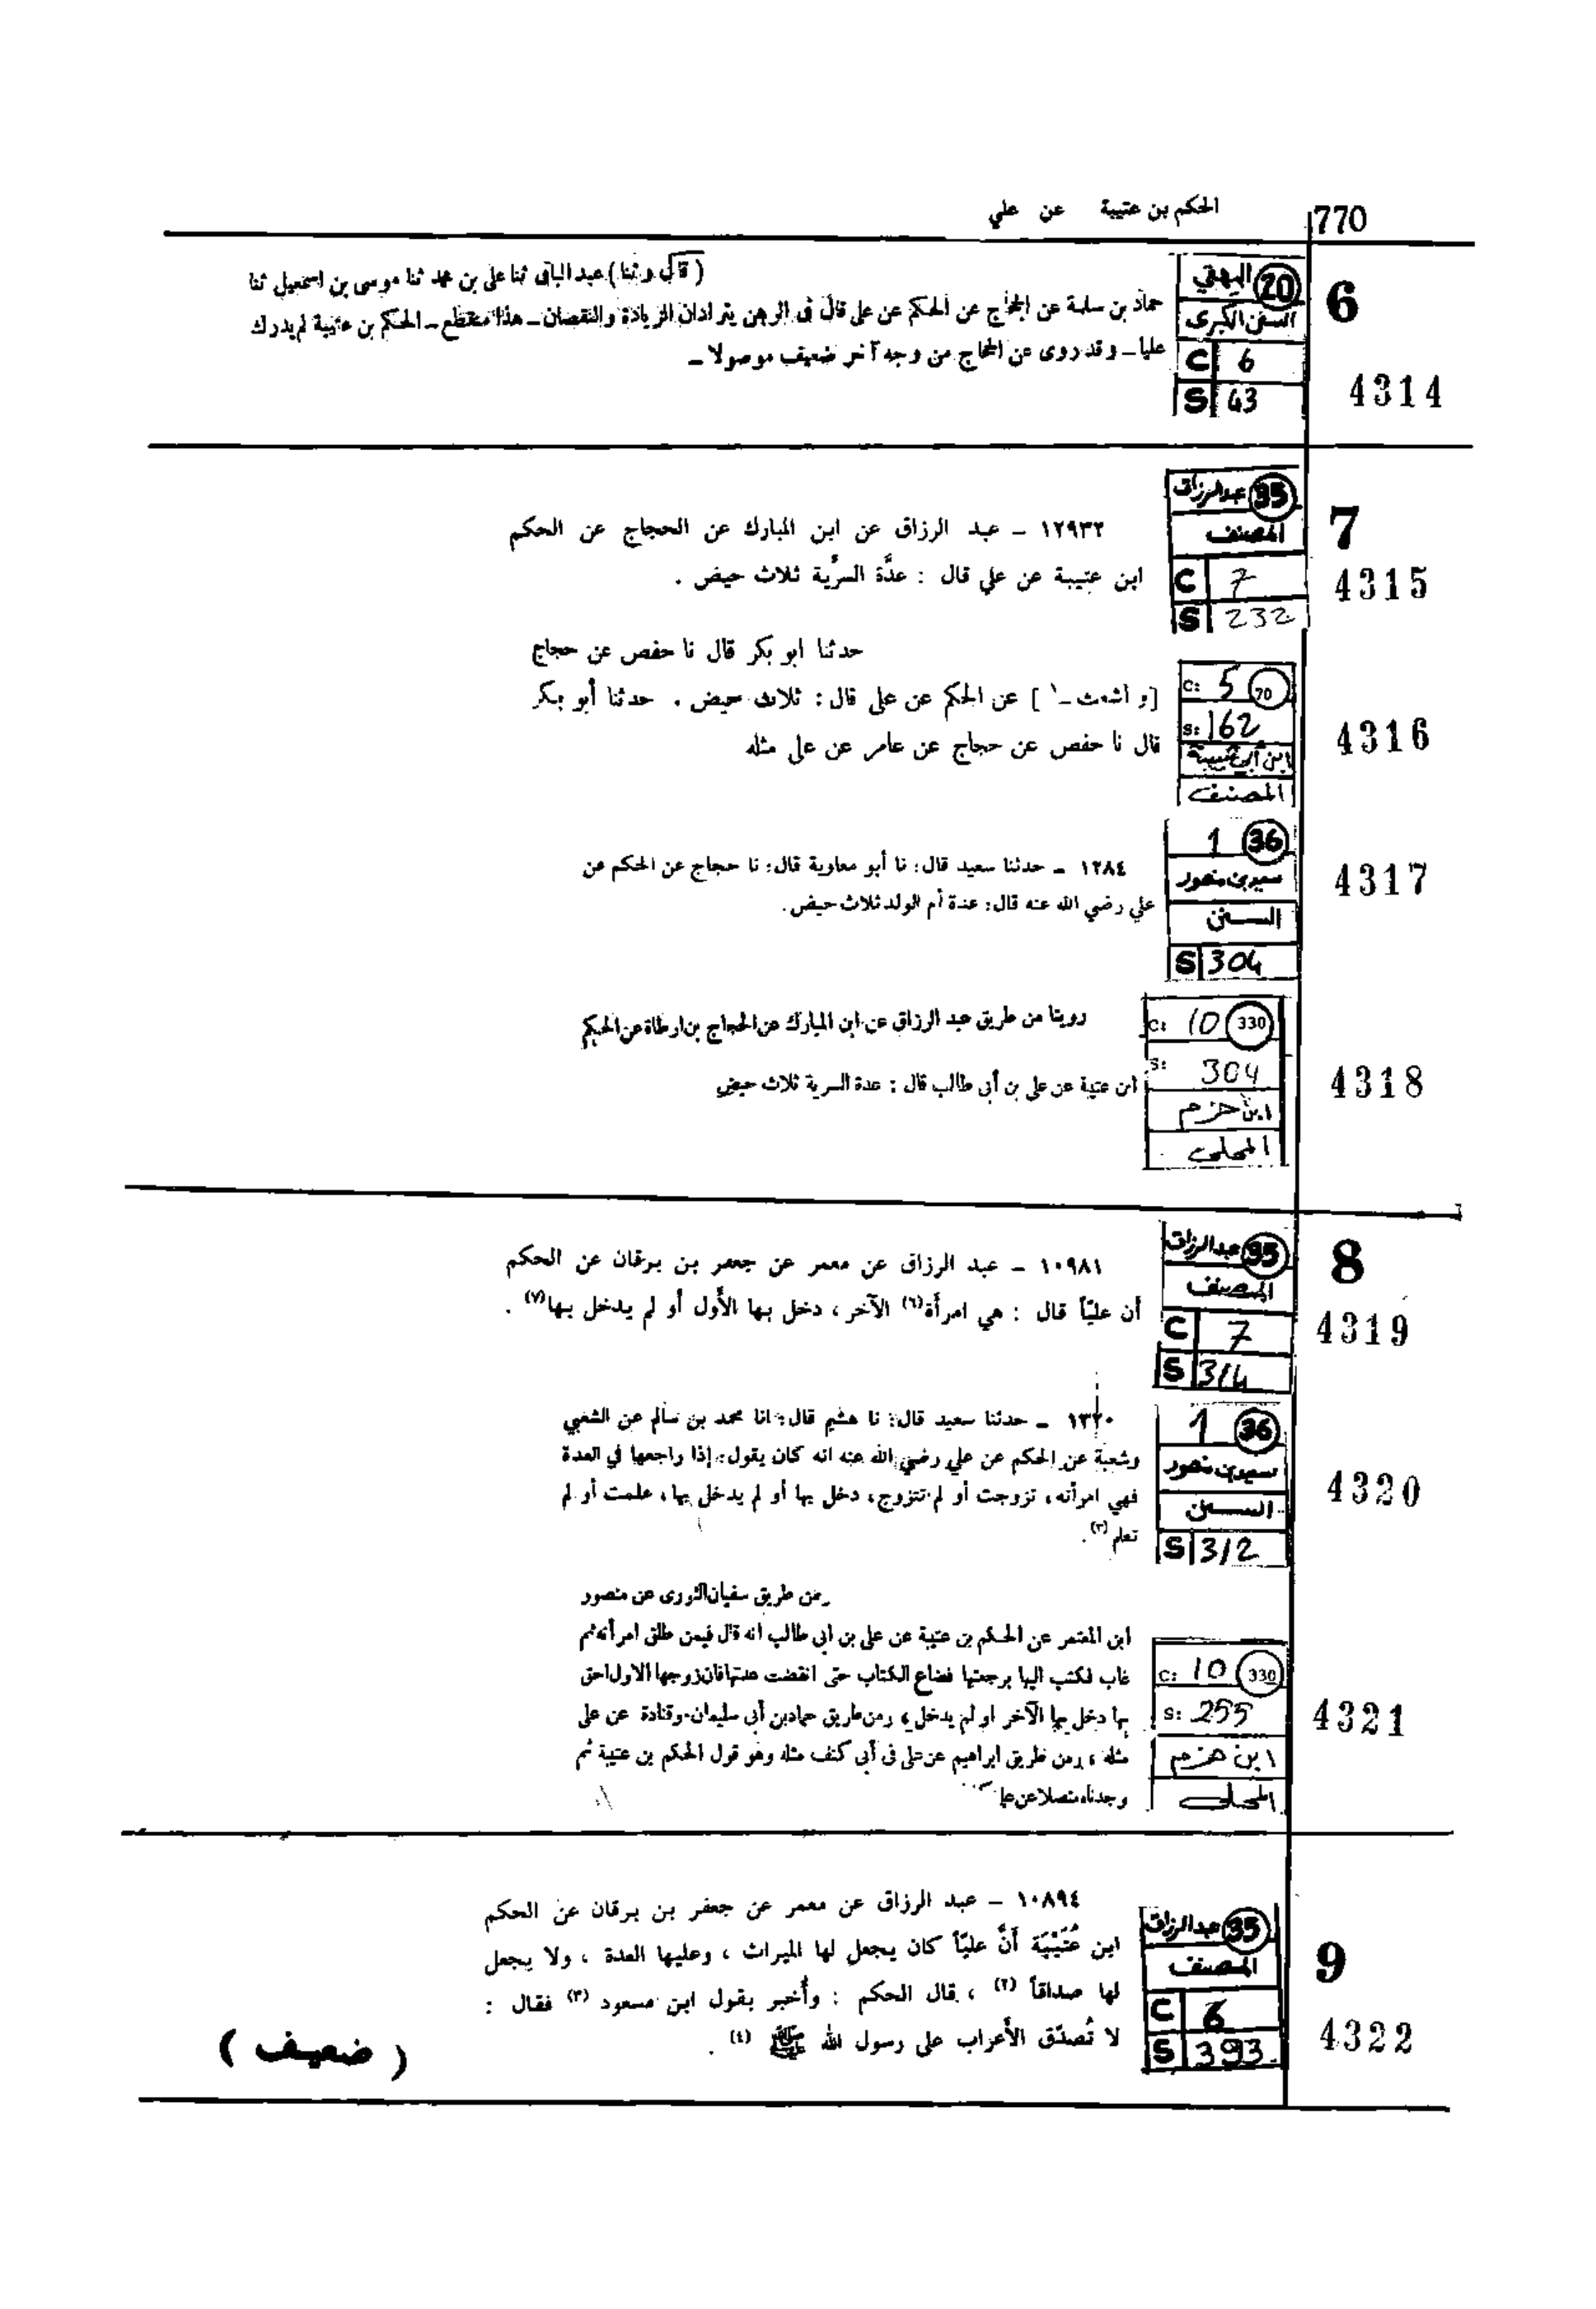 770
الحكم بن عتيبة عن علي
6
20 البيهقي
السنن الكبرى
C 6
S 43
4314
( قال وثنا ) عبد الباقى ثنا على بن محمد ثنا موسى بن اسمعيل ثنا
حماد بن سلمة عن الحجاج عن الحكم عن على قال فى الرهن يترادان الزيادة والنقصان ــ هذا منقطع ــ الحكم بن عتيبة لم يدرك
عليا ــ وقد روى عن الحجاج من وجه آخر ضعيف موصولا ــ
7
35 عبدالرزاق
المصنف
C 7
S 232
4315
١٢٩٣٢ ــ عبد الرزاق عن ابن المبارك عن الحجاج عن الحكم
ابن عتيبة عن علي قال : عدَّة السرِّية ثلاث حيض .
C: 5 70
S: 162
ابن أبي شيبة
المصنف
4316
حدثنا ابو بكر قال نا حفص عن حجاج
[ و أشعث ــ ١ ] عن الحكم عن على قال : ثلاث حيض . حدثنا أبو بكر
قال نا حفص عن حجاج عن عامر عن على مثله
1 36
سعيد بن منصور
السنن
S 304
4317
١٢٨٤ ــ حدثنا سعيد قال: نا أبو معاوية قال: نا حجاج عن الحكم عن
علي رضي الله عنه قال: عدة أم الولد ثلاث حيض.
C: 10 330
S: 304
ابن حزم
المحلى
4318
روينا من طريق عبد الرزاق عن ابن المبارك عن الحجاج بن ارطاة عن الحكم
ابن عتيبة عن على بن أبى طالب قال : عدة السرية ثلاث حيض
8
35 عبدالرزاق
المصنف
C 7
S 314
4319
١٠٩٨١ ــ عبد الرزاق عن معمر عن جعفر بن برقان عن الحكم
أن عليّاً قال : هي امرأة(٦) الآخر ، دخل بها الأول أو لم يدخل بها(٧) .
1 36
سعيد بن منصور
السنن
S 312
4320
١٣٢٠ ــ حدثنا سعيد قال: نا هشيم قال: انا محمد بن سالم عن الشعبي
وشعبة عن الحكم عن علي رضي الله عنه انه كان يقول: إذا راجعها في العدة
فهي امرأته، تزوجت أو لم تتزوج، دخل بها أو لم يدخل بها، علمت أو لم
تعلم(٣).
C: 10 330
S: 255
ابن حزم
المحلى
4321
ومن طريق سفيان الثورى عن منصور
ابن المعتمر عن الحكم بن عتيبة عن على بن ابى طالب انه قال فيمن طلق امرأته ثم
غاب فكتب اليها برجعتها فضاع الكتاب حتى انقضت عدتها فان زوجها الاول احق
بها دخل بها الآخر او لم يدخل ، ومن طريق حماد بن أبى سليمان ، وقتادة عن على
مثله ، ومن طريق ابراهيم عن على فى أبى كنف مثله وهو قول الحكم بن عتيبة ثم
وجدناه متصلا عن
9
35 عبدالرزاق
المصنف
C 6
S 393
4322
١٠٨٩٤ ــ عبد الرزاق عن معمر عن جعفر بن برقان عن الحكم
ابن عُتَيْبَة أَنَّ عليّاً كان يجعل لها الميراث ، وعليها العدة ، ولا يجعل
لها صداقاً (٢) ، قال الحكم : وأُخبر بقول ابن مسعود (٣) فقال :
لا تُصدّق الأَعراب على رسول الله ﷺ (٤) .
( ضعيف )